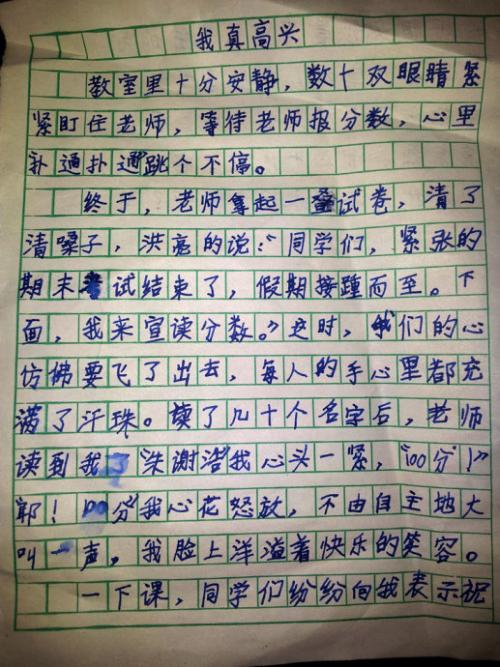 我真高兴
教室里十分安静，数十双眼睛紧
紧盯住老师，等待老师报分数，心里
扑通扑通跳个不停。
终于，老师拿起一叠试卷，清了
清嗓子，洪亮的说：“同学们，紧张的
期末考试结束了，假期接踵而至。下
面，我来宣读分数。”这时，我们的心
仿佛要飞了出去，每人的手心里都充
满了汗珠。读了几十个名字后，老师
读到我了“朱谢浩”我心头一紧，“100分！”
耶！100分”我心花怒放，不由自主地大
叫一声，我脸上洋溢着快乐的笑容。
一下课，同学们纷纷向我表示祝